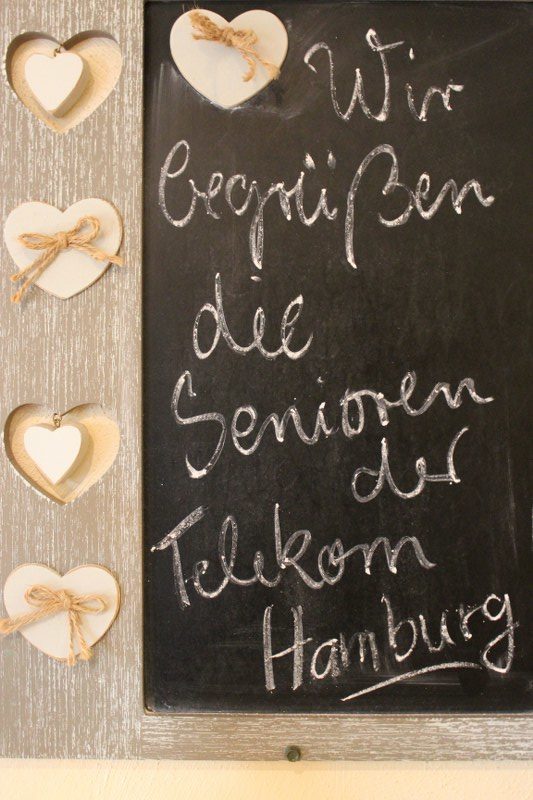 Wir
begrüßen
die
Senioren
der
Telekom
Hamburg